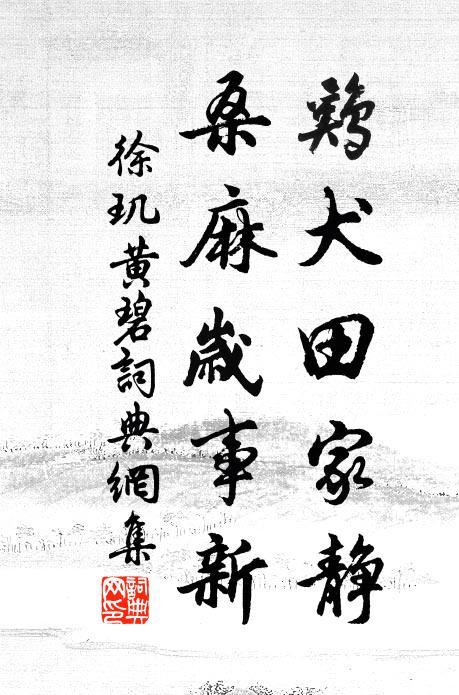 鷄犬田家静
桑麻歲事新
徐玑黄碧詞典網集
詞典